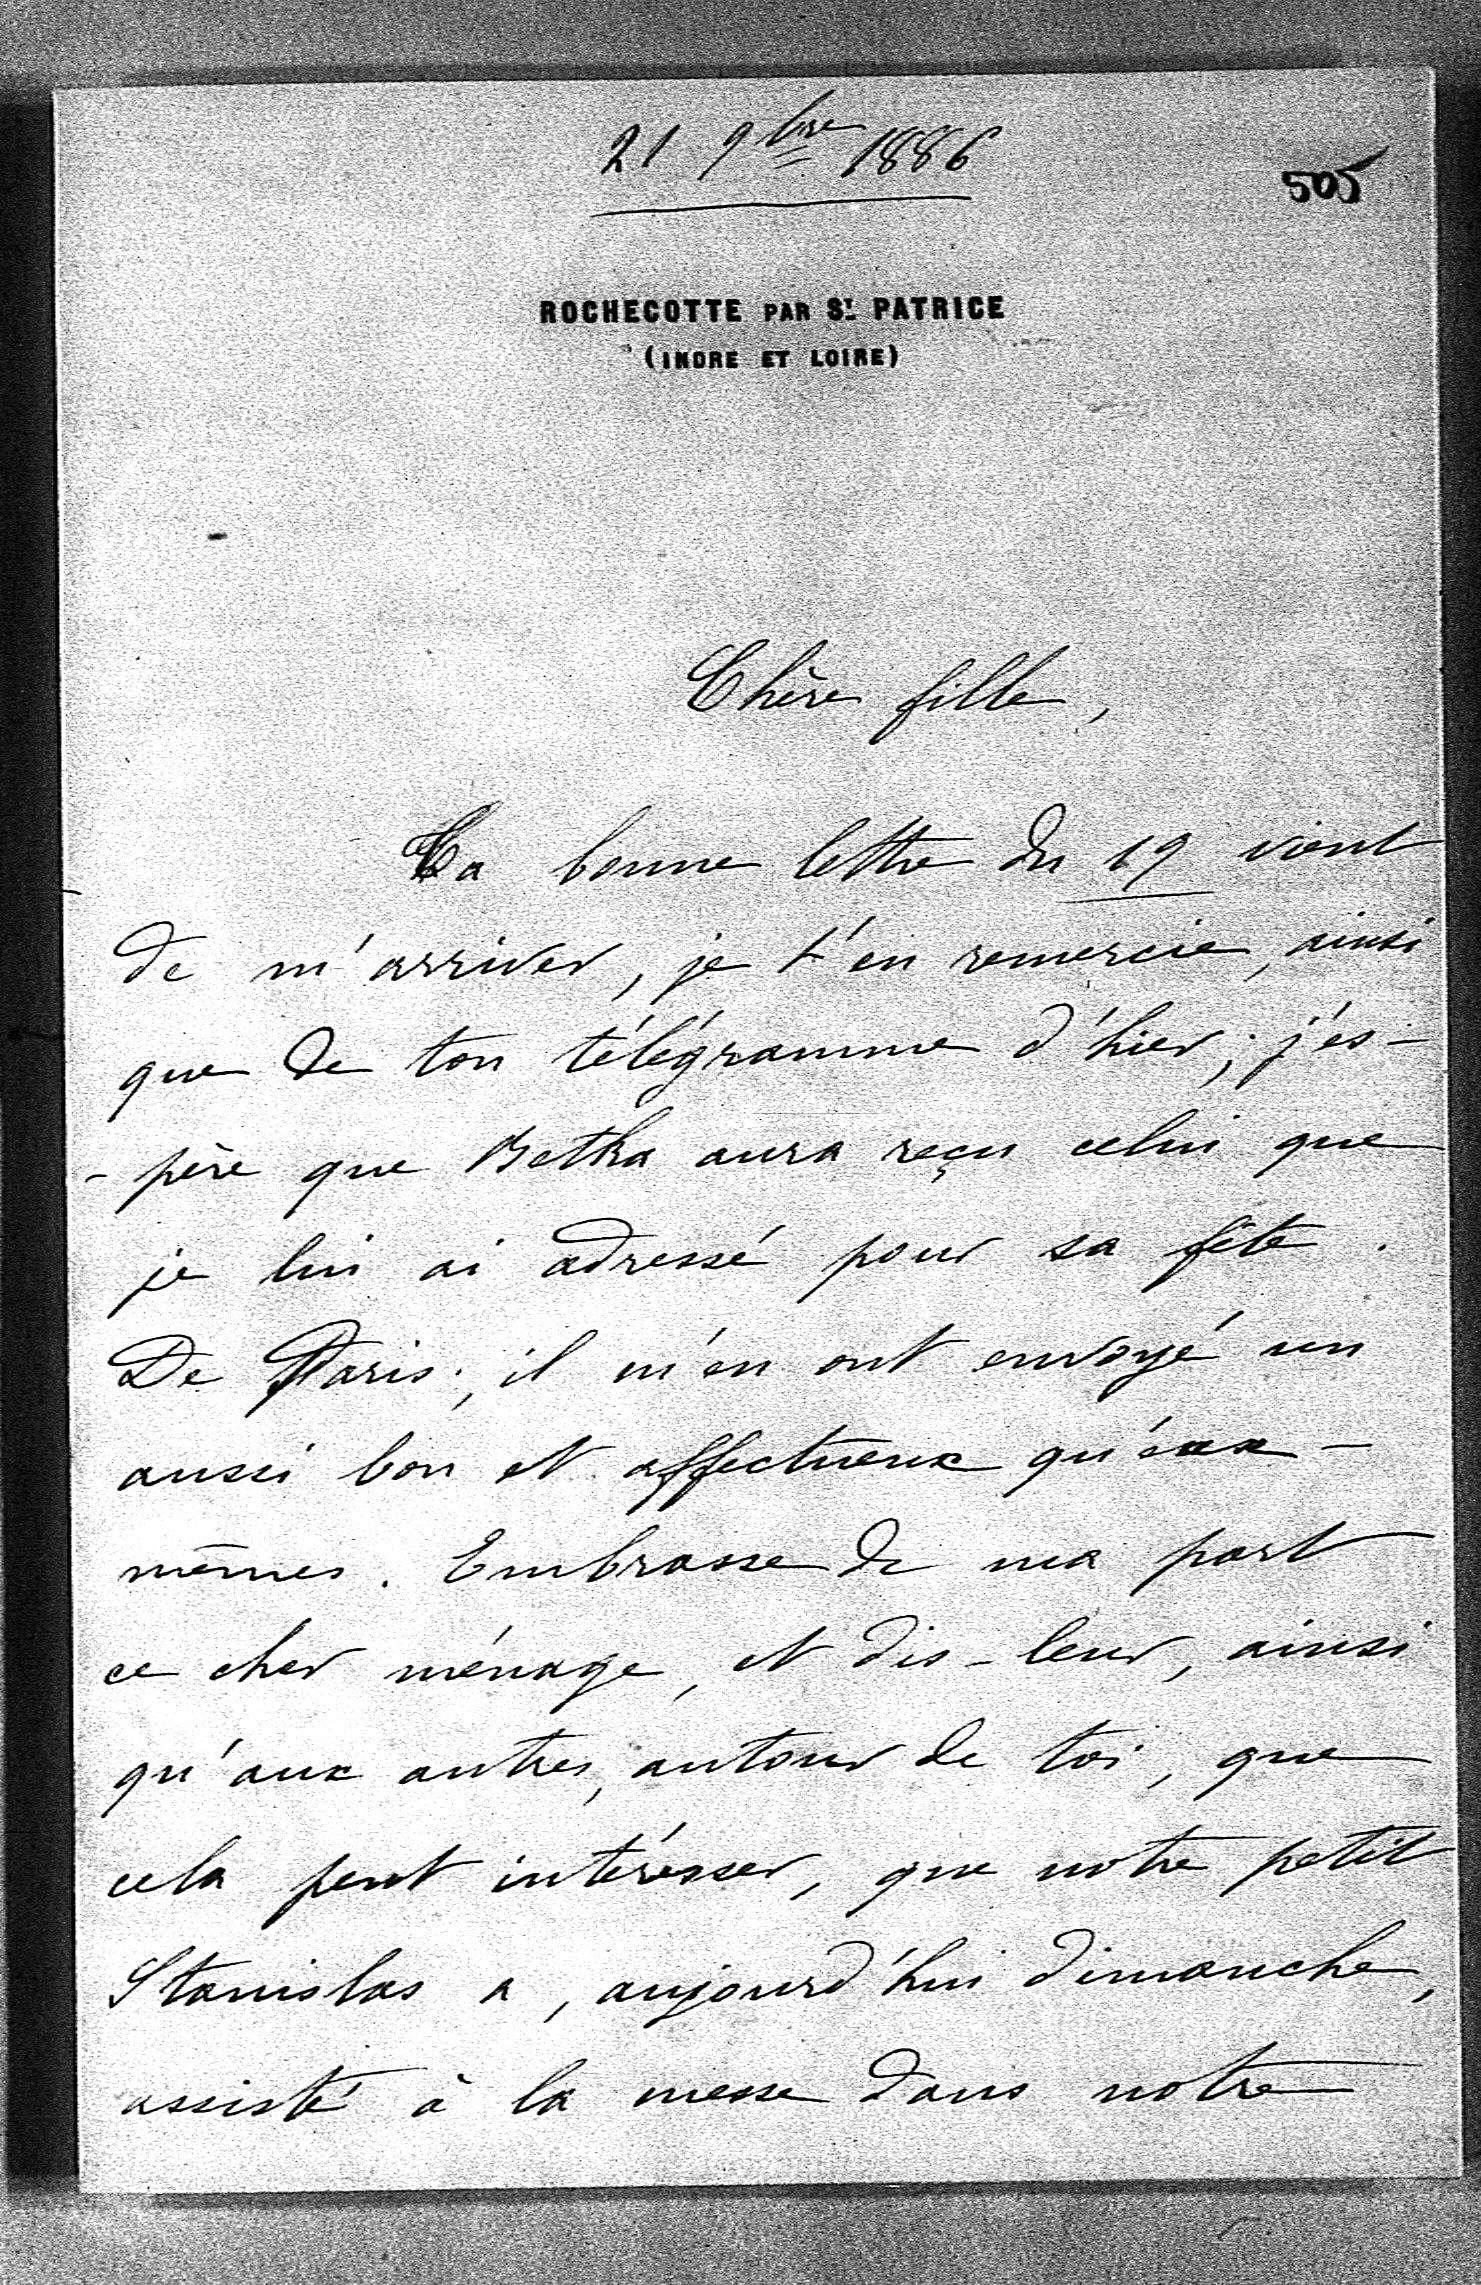 21 9bre 1886
505
ROCHECOTTE PAR ST. PATRICE
(INDRE ET LOIRE)
Chère fille,
Ta bonne lettre du 19 vient
de m'arriver, je t'en remercie, ainsi
que de ton télégramme d'hier; j'es-
-père que Betka aura reçu celui que
je lui ai adressé pour sa fête.
De Paris, il m'en ont envoyé un
aussi bon et affectueux qu'eux-
mêmes. Embrasse de ma part
ce cher ménage, et dis-leur, ainsi
qu'aux autres, autour de toi, que
cela peut intéresser, que notre petit
Stanislas a, aujourd'hui dimanche,
assisté à la messe dans notre